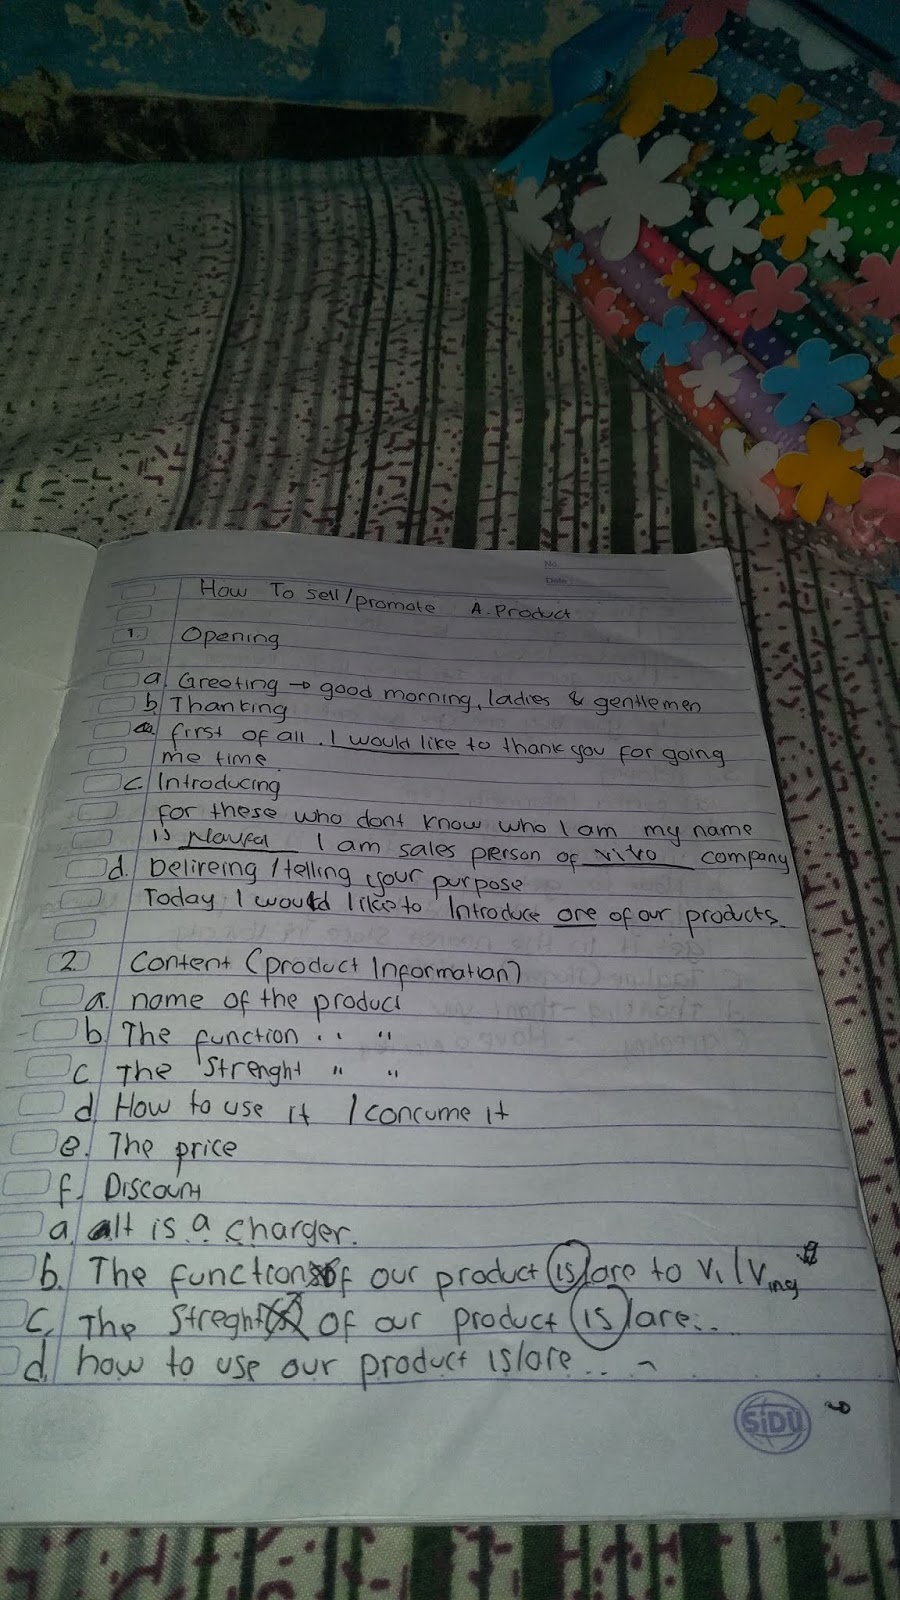 No.
Date:
How To sell/promote A. Product
1. Opening
a. Greeting → good morning, ladies & gentlemen
b. Thanking
first of all. I would like to thank you for going
me time
c. Introducing
for these who dont know who I am my name
is Naufal I am sales person of vivo company
d. Delireing /telling your purpose
Today I would like to Introduce one of our products.
2. Content (product Information)
a. name of the product
b. The function " "
c. The Strenght " "
d. How to use it / concume it
e. The price
f. Discount
a. It is a charger.
b. The function of our product is/are to V1/Ving
c. The Streght of our product is/are...
d. how to use our product is/are...
SiDU